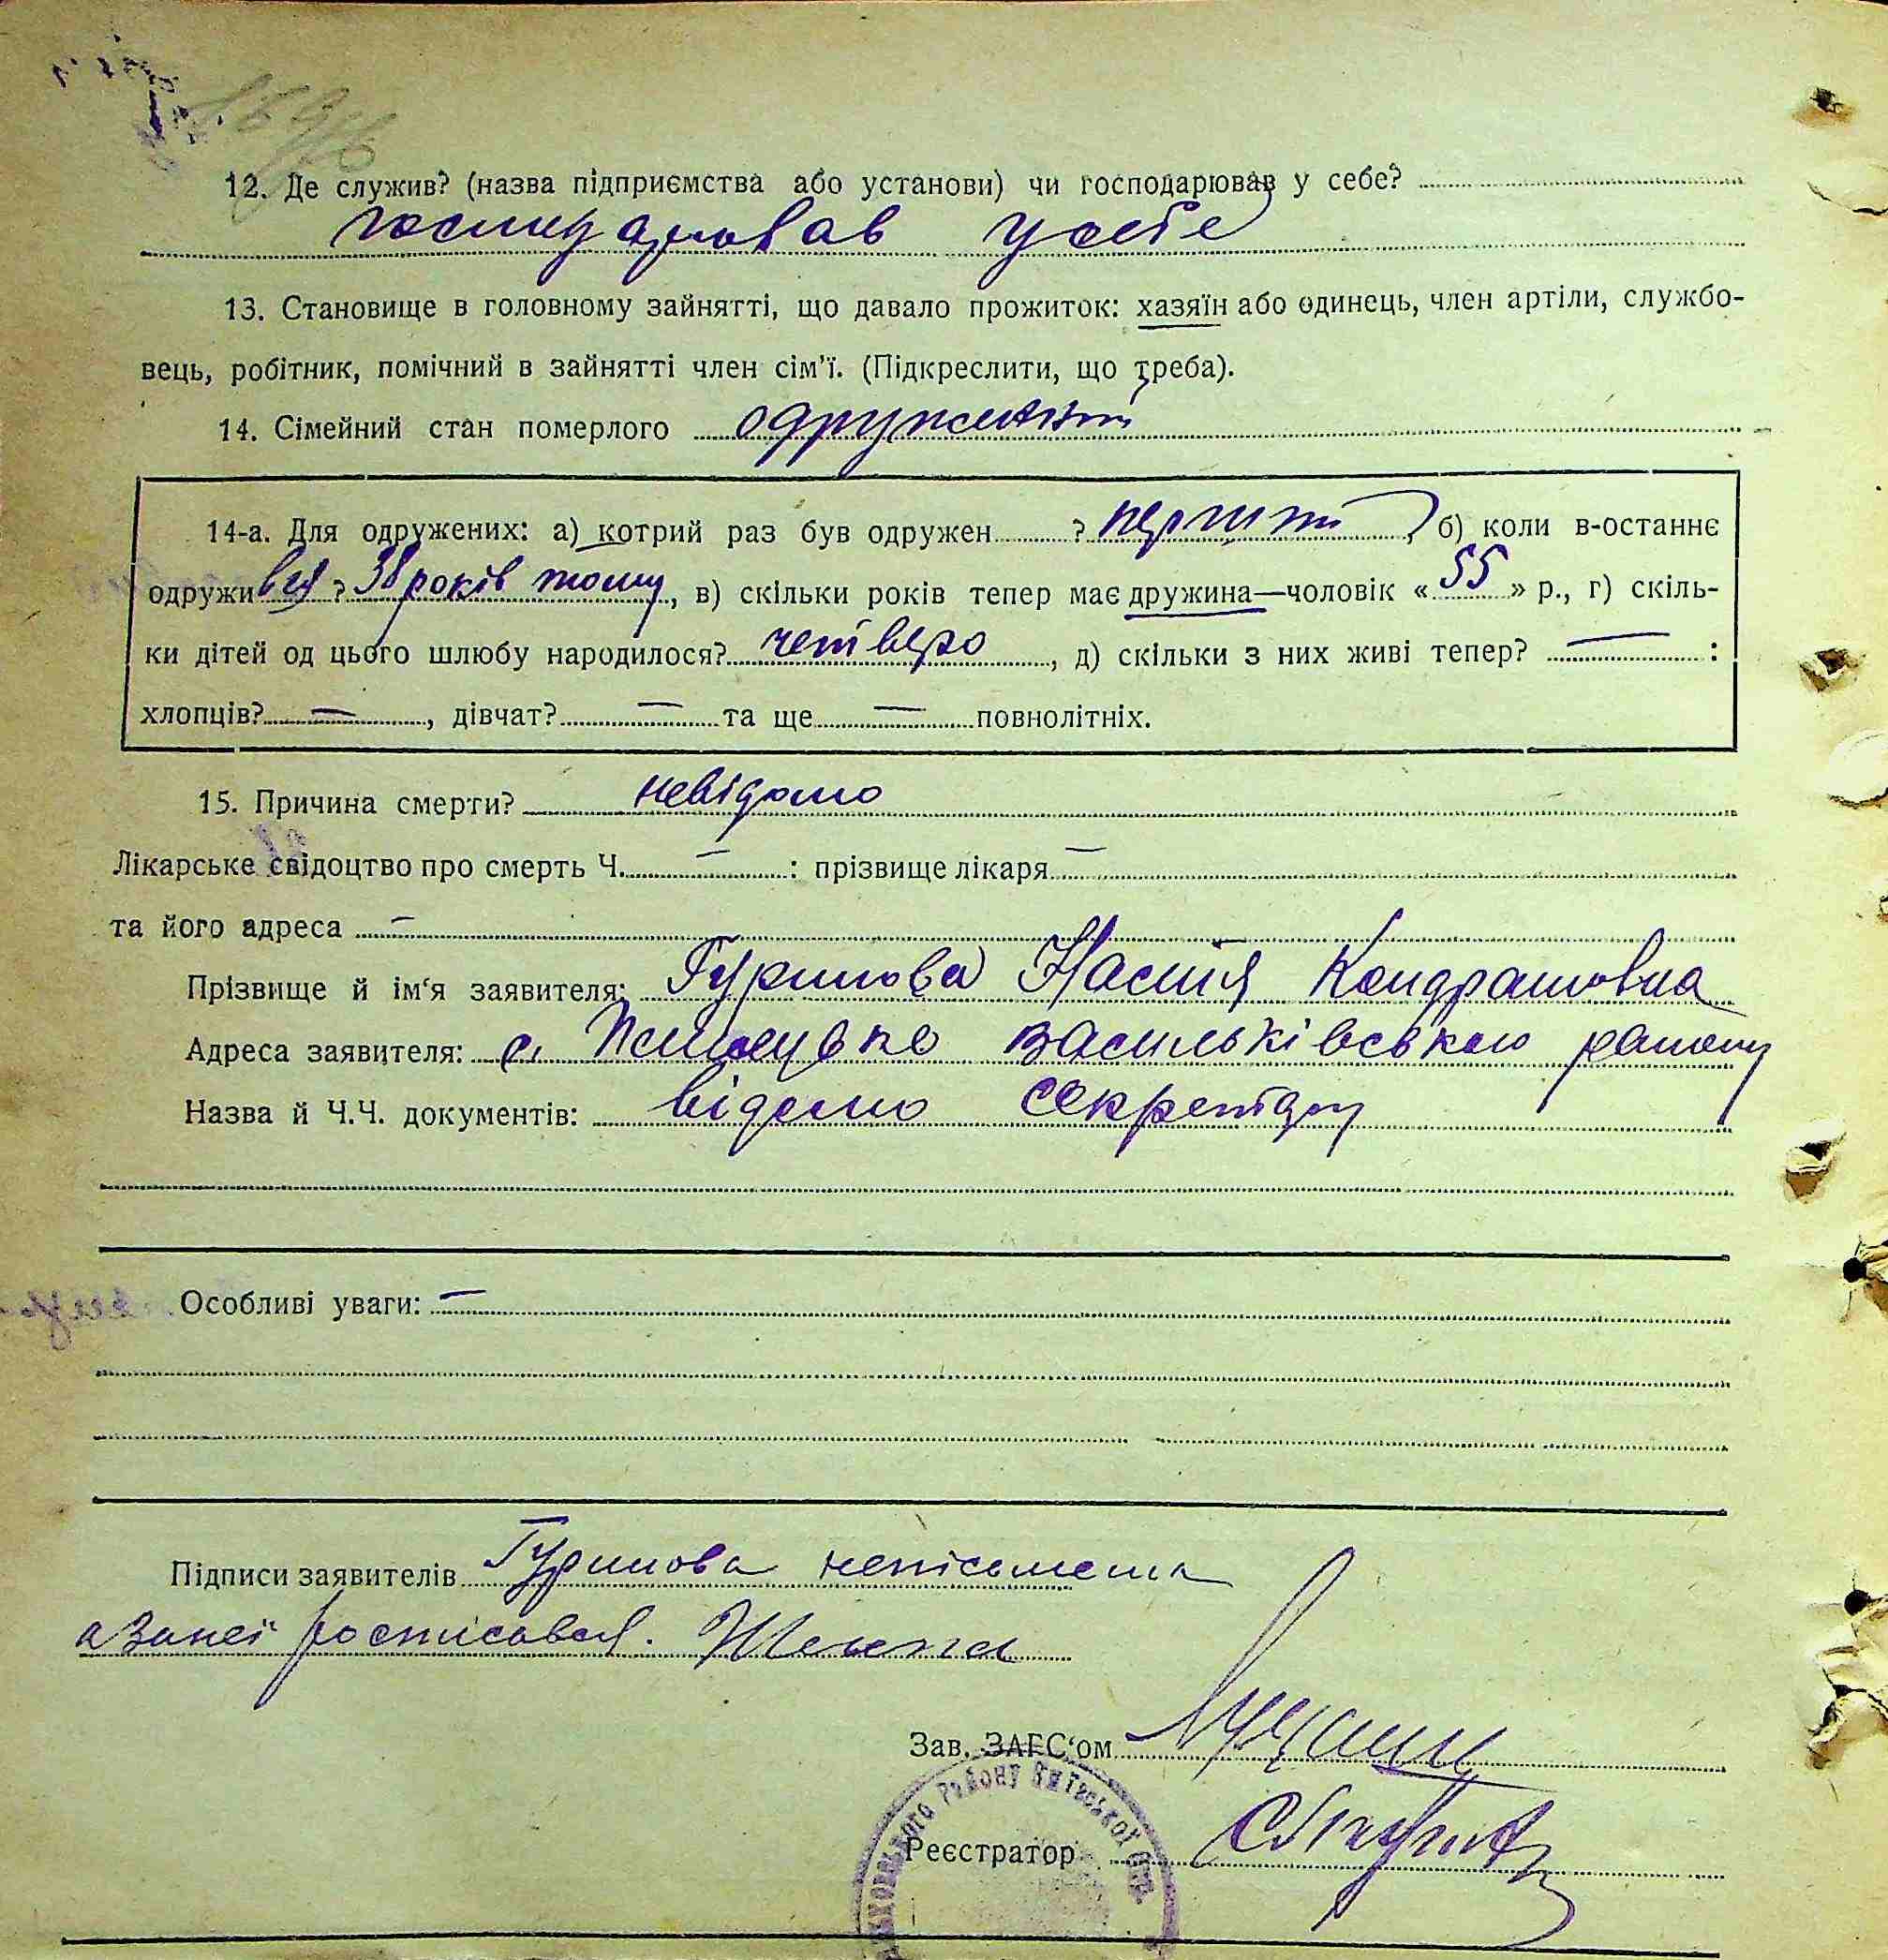 12. Де служив? (назва підприємства або установи) чи господарював у себе?
господарював у себе
13. Становище в головному зайнятті, що давало прожиток: хазяїн або одинець, член артіли, службо-
вець, робітник, помічний в зайнятті член сім'ї. (Підкреслити, що треба).
14. Сімейний стан померлого одружений
14-а. Для одружених: а) котрий раз був одружен ? перший, б) коли в-останнє
одруживсь ? 38 років тому, в) скільки років тепер має дружина—чоловік «55» р., г) скіль-
ки дітей од цього шлюбу народилося? четверо, д) скільки з них живі тепер? — :
хлопців? —, дівчат? — та ще — повнолітніх.
15. Причина смерти? невідомо
Лікарське свідоцтво про смерть Ч. — : прізвище лікаря —
та його адреса —
Прізвище й ім'я заявителя: Гуринова Настя Кондратовна
Адреса заявителя: с. Васильківською району
Назва й Ч.Ч. документів: відомо секретарю
Особливі уваги: —
Підписи заявителів Гуринова неписьмена
а за неї росписався.
Зав. ЗАГС'ом
Реєстратор